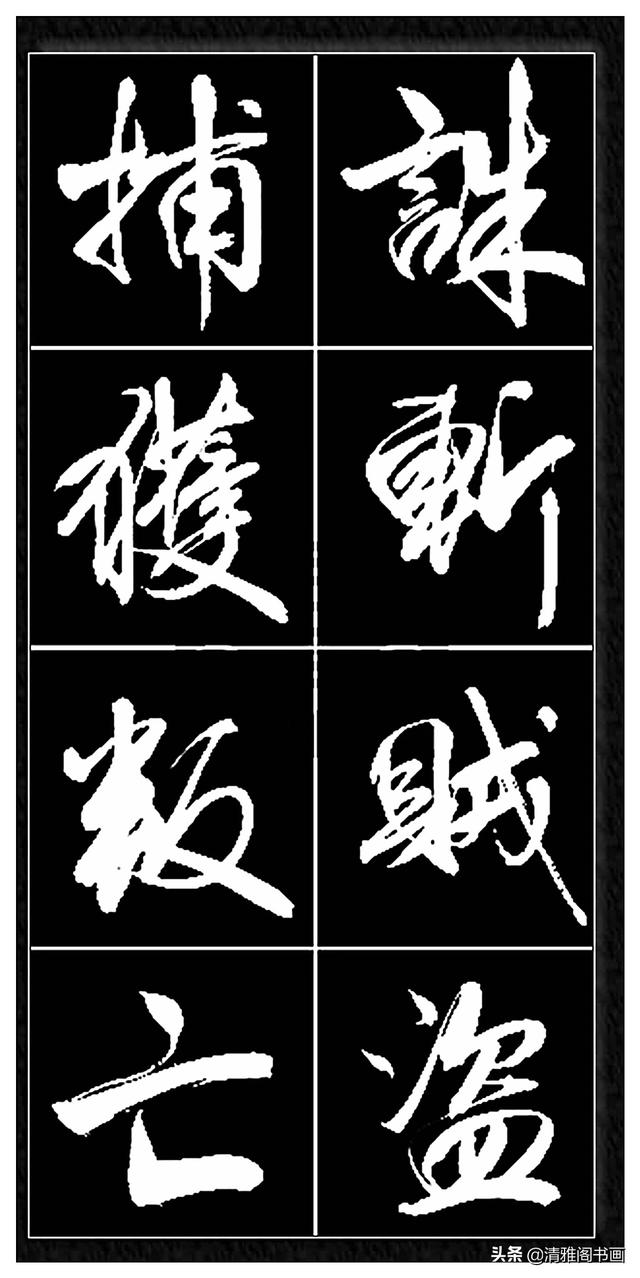 誅斬賊盜
捕獲叛亡
头条 @清雅阁书画